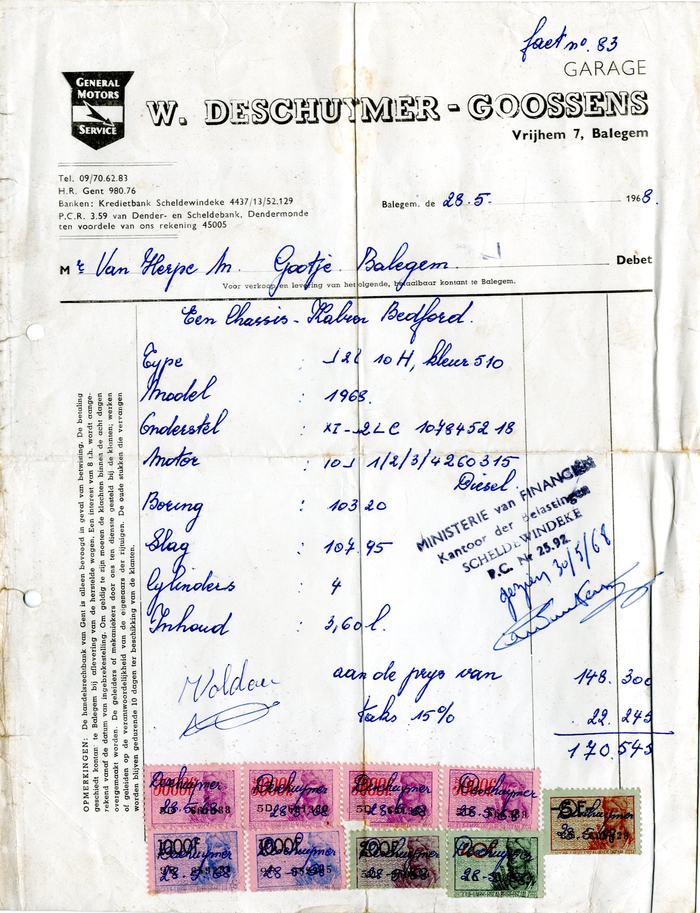 fact no. 83
GARAGE
GENERAL MOTORS SERVICE
W. DESCHUYMER - GOOSSENS
Vrijhem 7, Balegem
Tel. 09/70.62.83
H.R. Gent 980.76
Banken: Kredietbank Scheldewindeke 4437/13/52.129
P.C.R. 3.59 van Dender- en Scheldebank, Dendermonde
ten voordele van ons rekening 45005
Balegem, de 28.5. 1968.
Mr Van Herpe M. Gootje. Balegem. Debet
Voor verkoop en levering van het volgende, betaalbaar kontant te Balegem.
Een Chassis - Bedford.
Type : J2L 10H, kleur 510
Model : 1968.
Onderstel : 2LC 107845218
Motor : 10J 1/2/3/4260315
Diesel.
Boring : 10320
Slag : 107.95
Cylinders : 4
Inhoud : 3,60 l.
MINISTERIE van FINANCIEN
Kantoor der Belastingen
SCHELDEWINDEKE
P.C. Nr 25.92.
gezien 30/5/68
Voldaan
aan de prys van 148.300
taks 15% 22.245
170.545
OPMERKINGEN: De handelsrechtbank van Gent is alleen bevoegd in geval van betwisting. De betaling
geschiedt kontant te Balegem bij aflevering van de herstelde wagen. Een interest van 8 t.h. wordt aange-
rekend vanaf de datum van ingebrekestelling. Om geldig te zijn moeten de klachten binnen de acht dagen
overgemaakt worden. De geleiders of mekaniekers door ons ten dienste gesteld bij de klanten, werken
of geleiden op de verantwoordelijkheid van de eigenaars der rijtuigen. De oude stukken die vervangen
worden blijven gedurende 10 dagen ter beschikking van de klanten.
Deschuymer
28-5-68
Deschuymer
28-5-68
Deschuymer
28-5-68
Deschuymer
28-5-68
5F
Deschuymer
28-5-68
1000F
Deschuymer
28-5-68
1000F
Deschuymer
28-5-68
200F
Deschuymer
28-5-68
Deschuymer
28-5-68